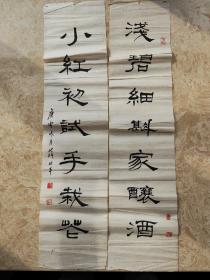 淺碧細斟家釀酒
小紅初試手栽花